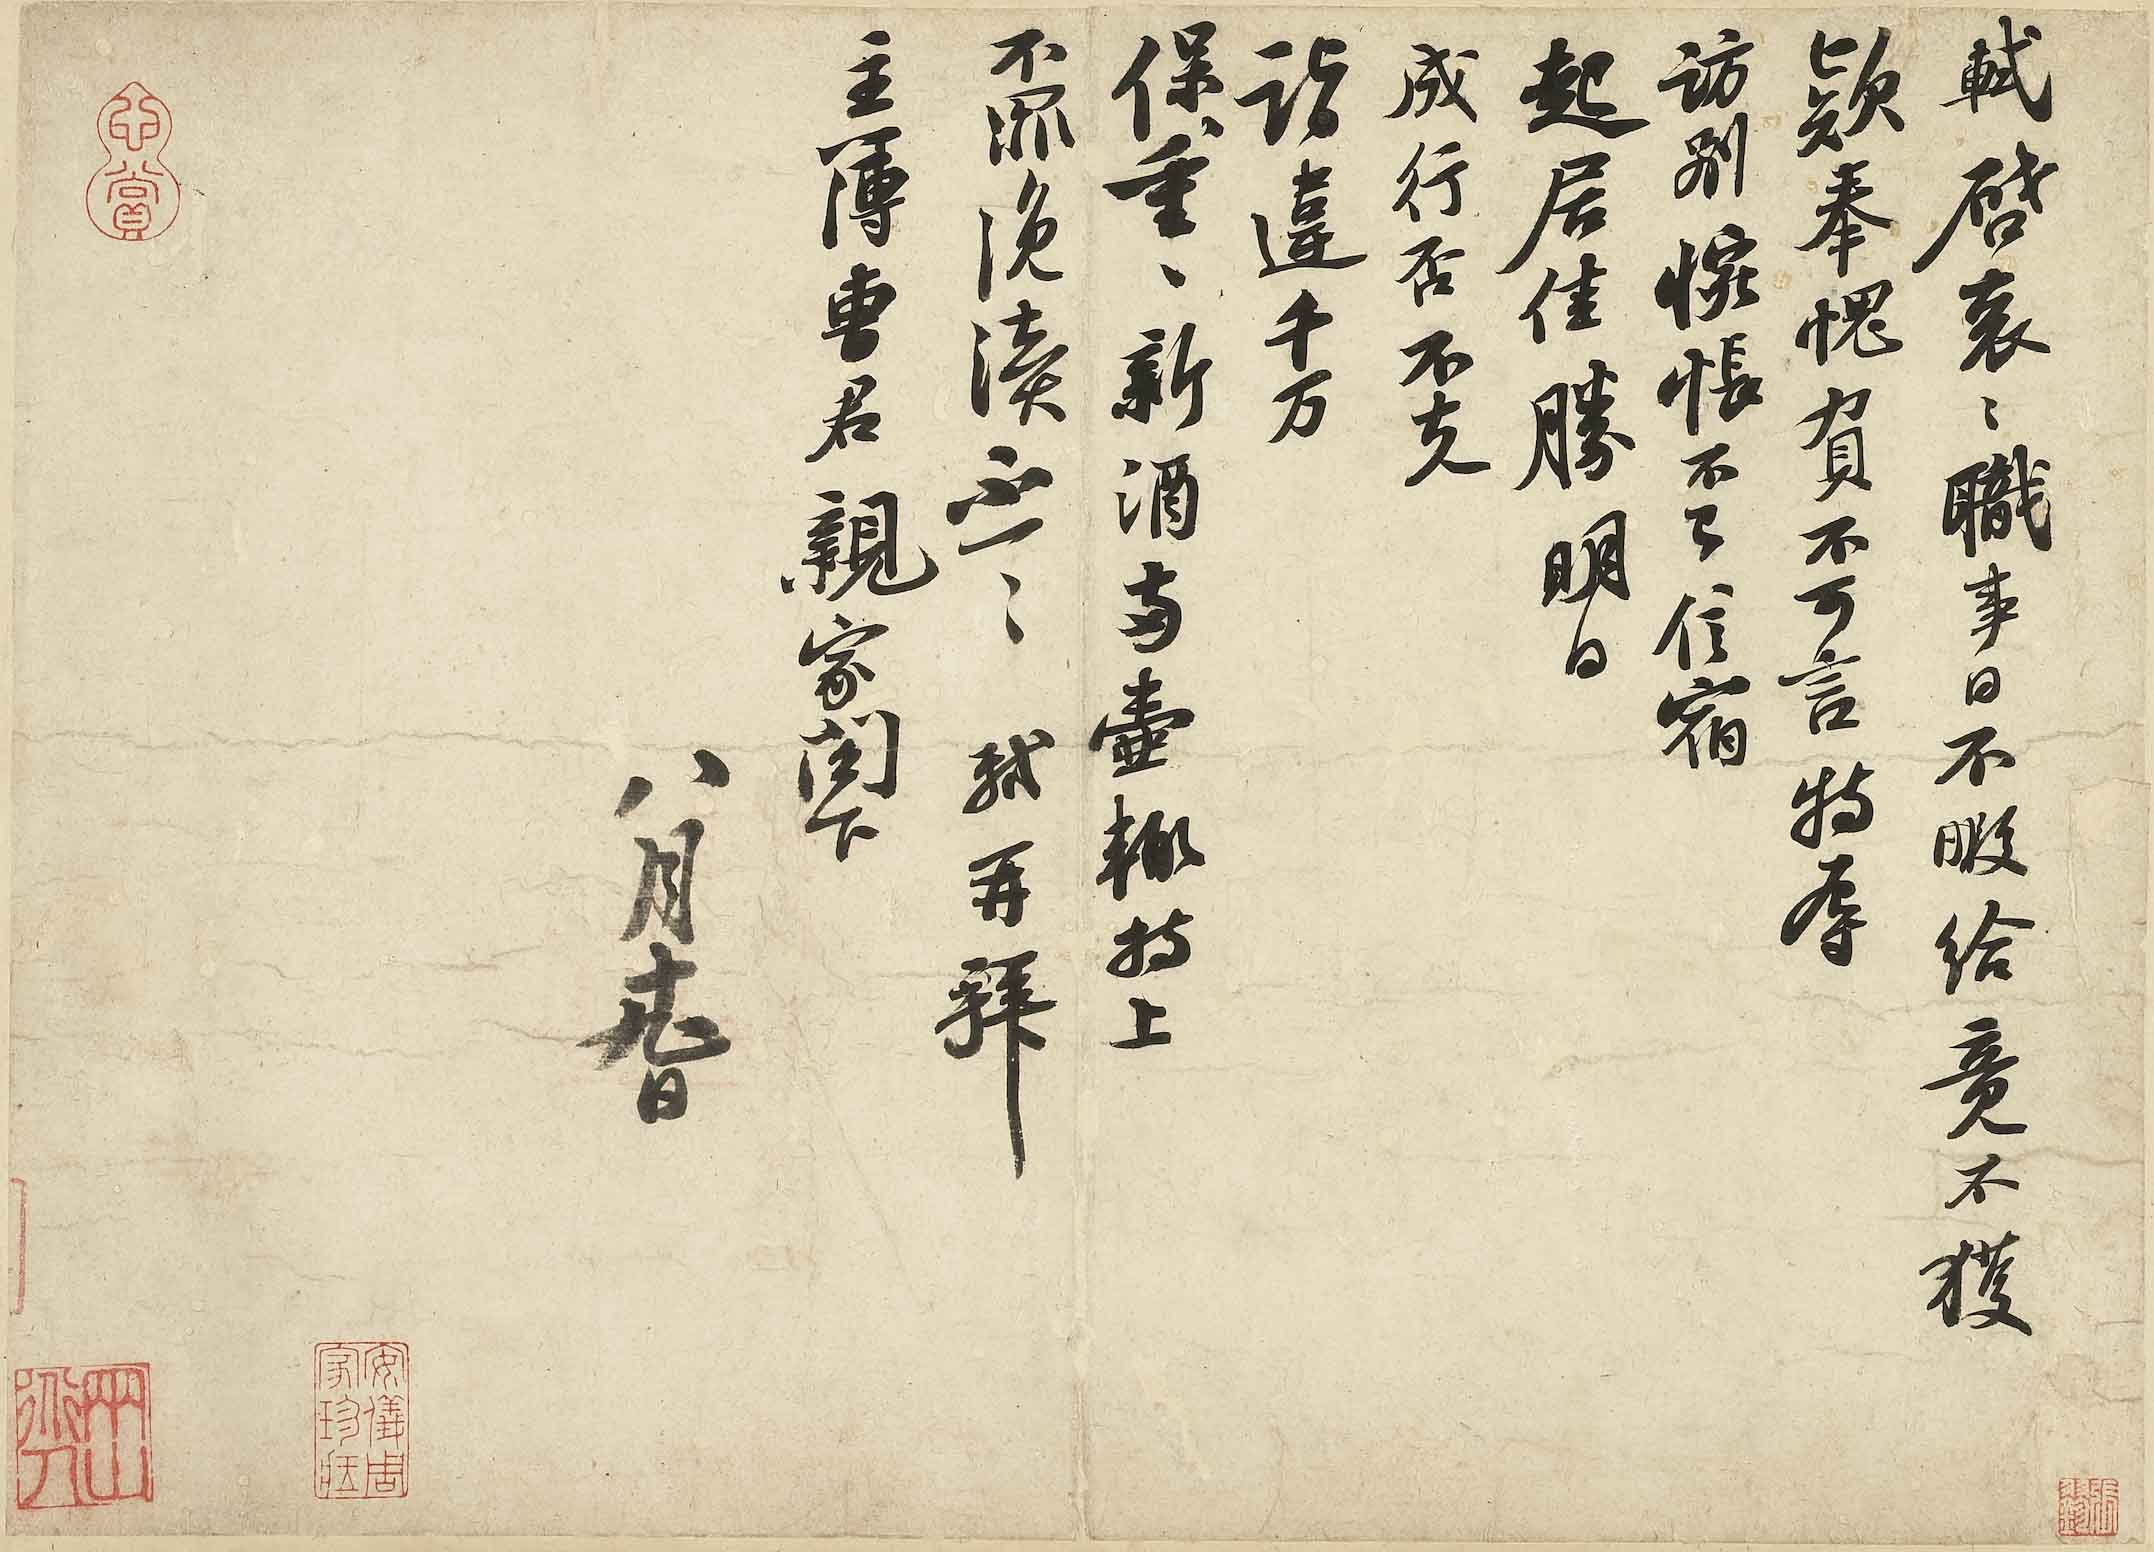 軾啓袞〻職事日不暇給竟不獲
欵奉愧負不可言特辱
訪別惋悵不已信宿
起居佳勝明日
成行否不克
詣違千万
保〻重〻新酒兩壺輒持上
不罪浼瀆不一〻 軾再拜
主簿曹君親家閤下
八月十九日
心賞
安儀周家珍藏